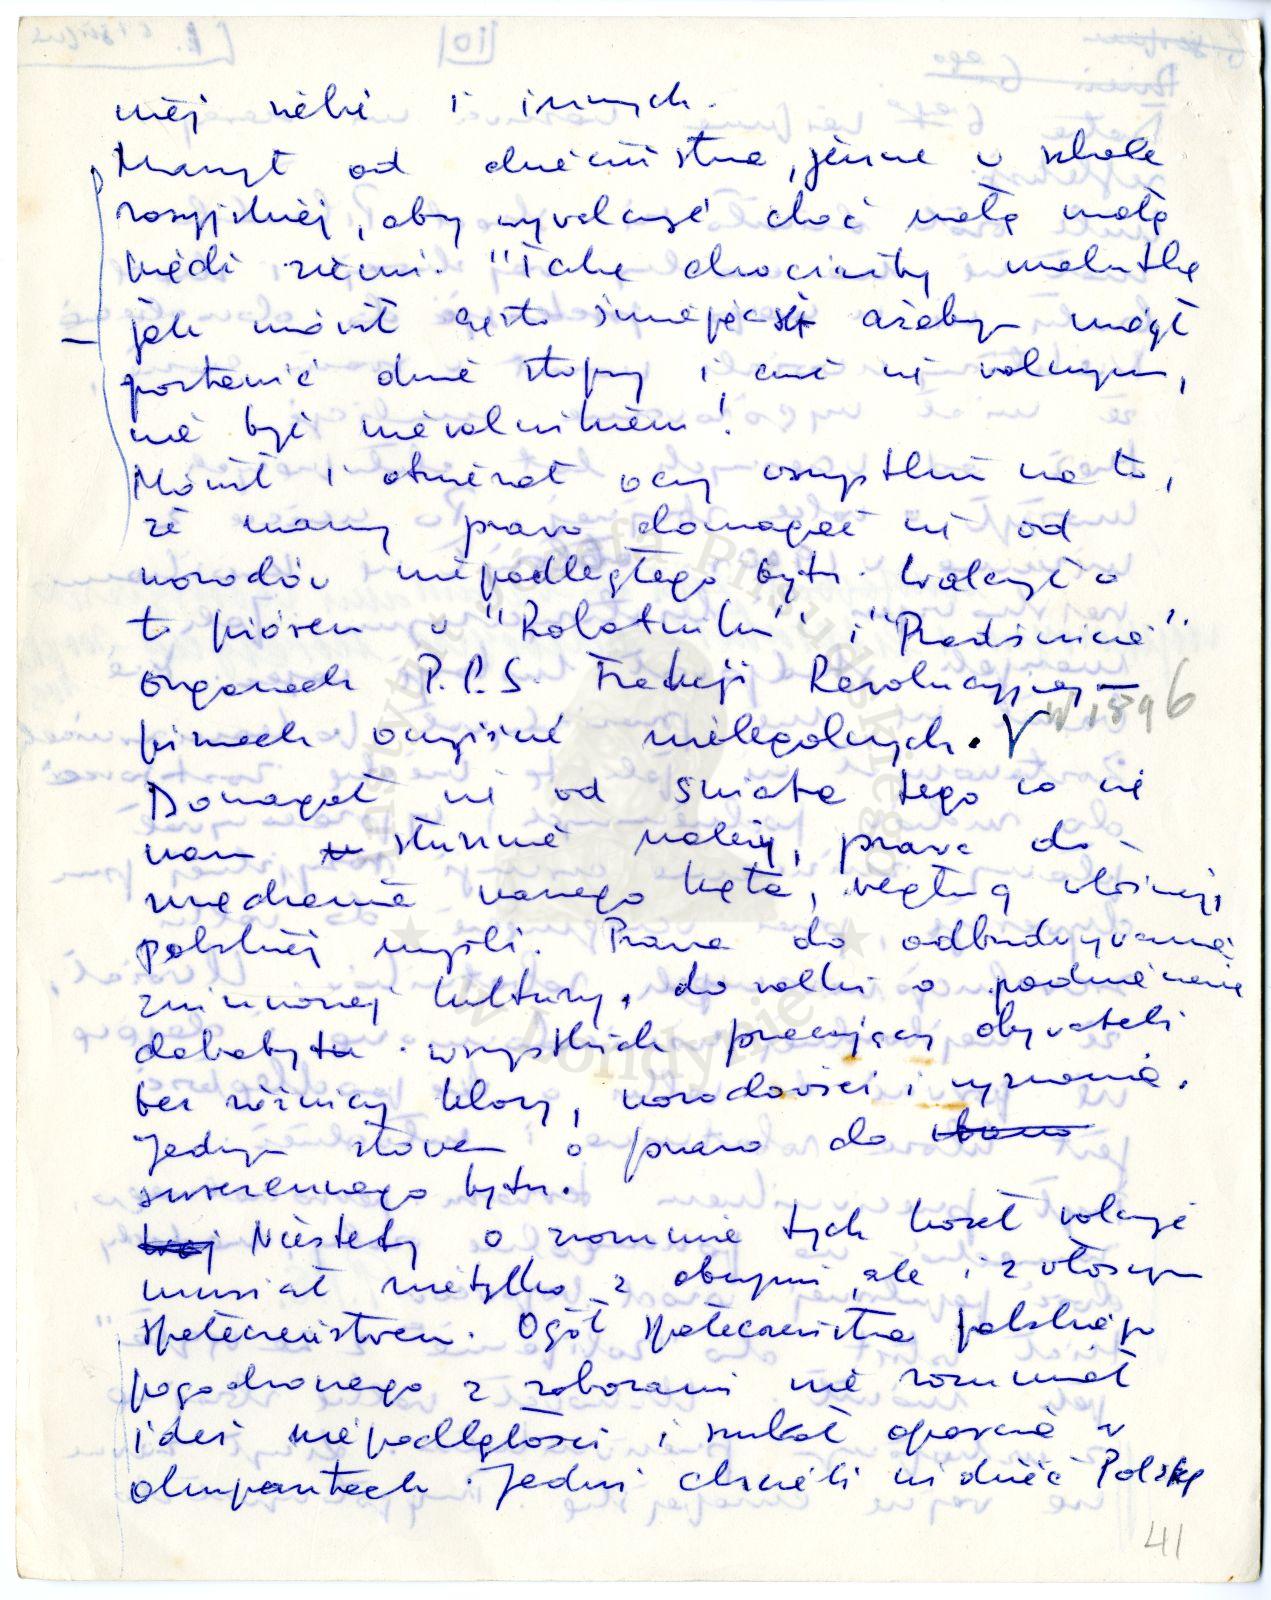 niej siebie i innych.
Marzył od dzieciństwa, jeszcze w szkole
rosyjskiej, aby wywalczyć choć małą małą
piędź ziemi. "Taką chociażby malutką
jak mówił często śmiejąc się ażebym mógł
postawić dwie stopy i czuć się wolnym,
nie być niewolnikiem!
Mówił i otwierał oczy wszystkim na to,
że mamy prawo domagać się od
narodów niepodległego bytu. Walczył o
to piórem w "Robotniku" i "Przedświcie"
organach P.P.S. Frakcji Rewolucyjnej –
pismach oczywiście nielegalnych. V w 1896
Domagał się od świata tego co się
nam słusznie należy, prawa do
własnego kąta, według własnej,
polskiej myśli. Prawa do odbudowywania
zniszczonej kultury, do walki o podniesienie
dobrobytu wszystkich pracujących obywateli
bez różnicy klasy, narodowości i wyznania.
Jednym słowem o prawo do
suwerennego bytu.
Niestety o zrozumienie tych haseł walczyć
musiał nietylko z obcymi, ale i z własnym
społeczeństwem. Ogół społeczeństwa polskiego
pogodzonego z zaborami nie rozumiał
idei niepodległości i szukał oparcia w
okupantach. Jedni chcieli widzieć Polskę
41
Instytut Józefa Piłsudskiego
w Londynie